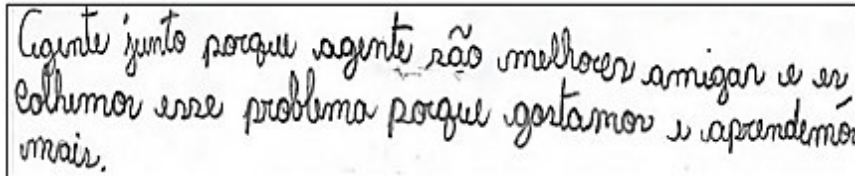 Agente junto porque agente são melhores amigas e es
colhemos esse problema porque gostamos e aprendemós
mais.